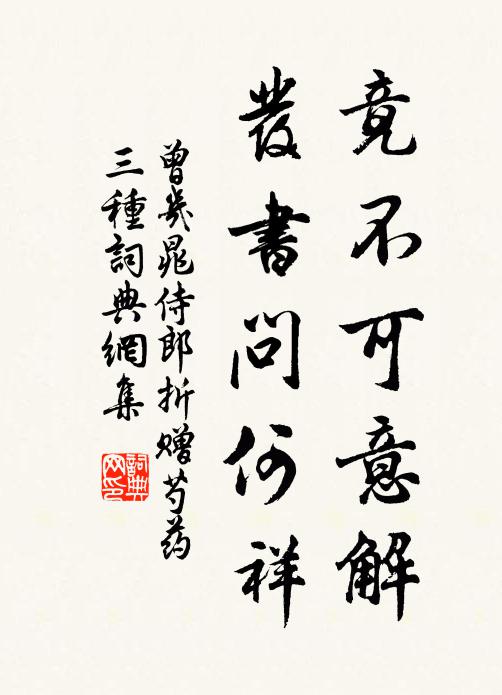 竟不可意解
發書問何祥
曾幾晁侍郎折贈芍药
三種詞典網集
詞典
网印